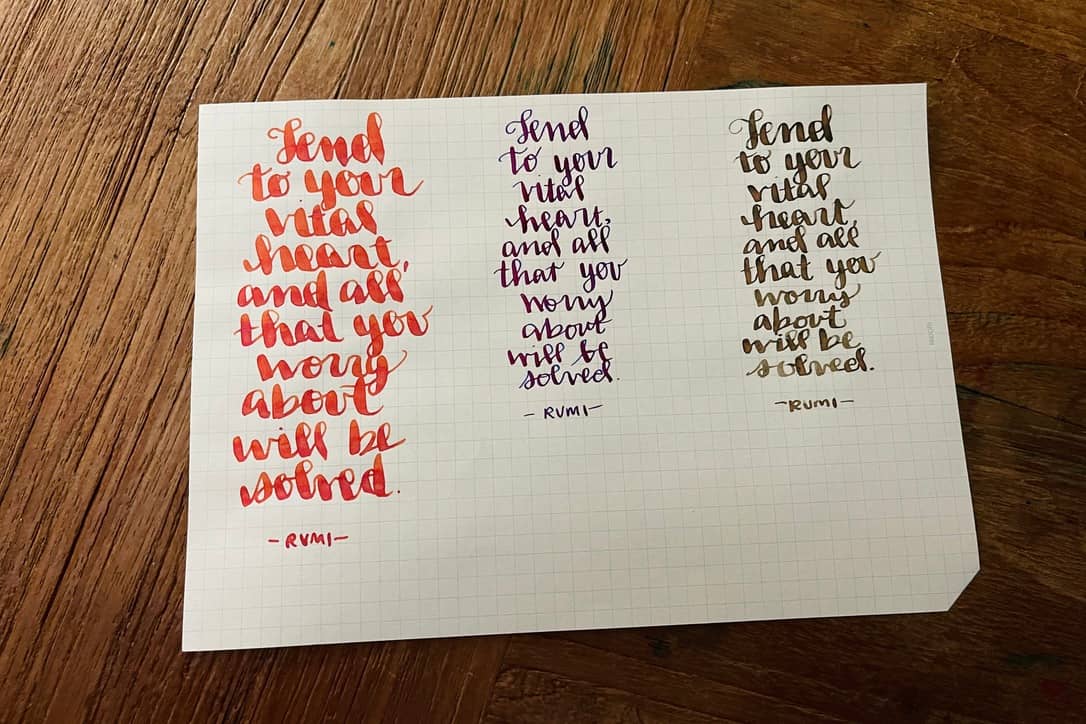 Send
to your
vital
heart,
and all
that you
worry
about
will be
solved.
-RUMI-
Send
to your
vital
heart,
and all
that you
worry
about
will be
solved.
-RUMI-
Send
to your
vital
heart,
and all
that you
worry
about
will be
solved.
-RUMI-